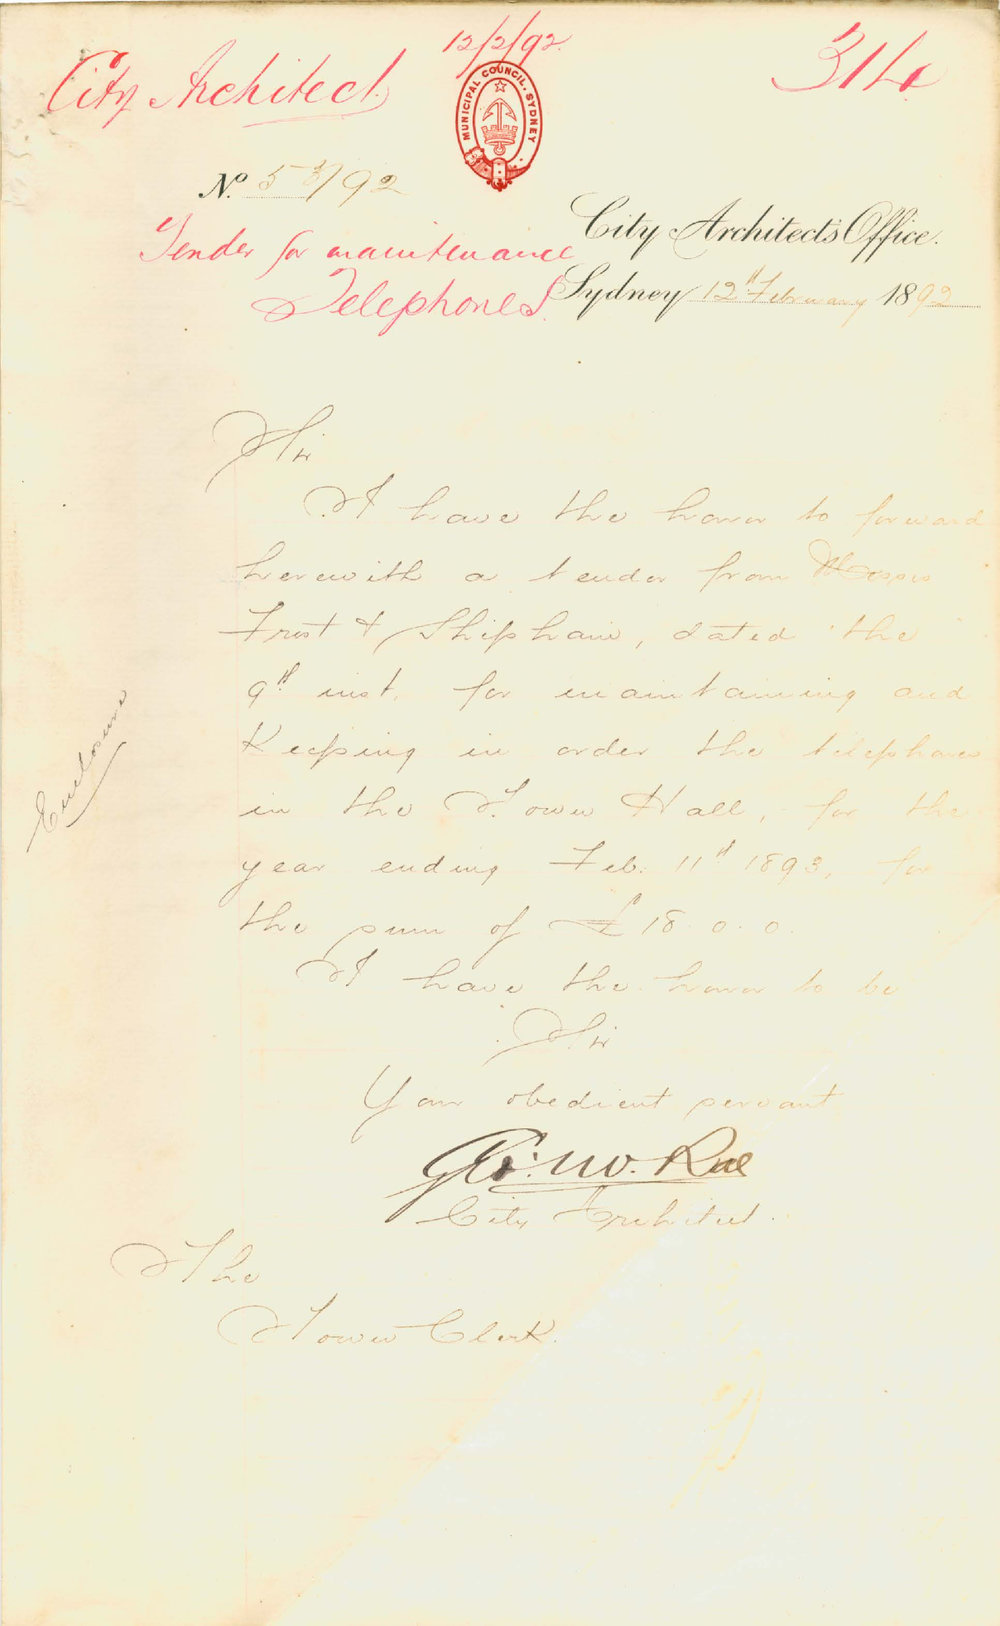 12/2/92
City Architect
314
MUNICIPAL COUNCIL. SYDNEY
No. 53/92
City Architect's Office.
Tender for maintenance
Telephones
Sydney 12th February 1892
Sir
I have the honor to forward
herewith a tender from Messrs
Frost & Shipham, dated the
9th inst. for maintaining and
Keeping in order the telephones
in the Town Hall, for the
year ending Feb. 11th 1893, for
the sum of £18.0.0.
I have the honor to be
Sir
Your obedient servant
Geo. McRae
City Architect.
The
Town Clerk.
Enclosure